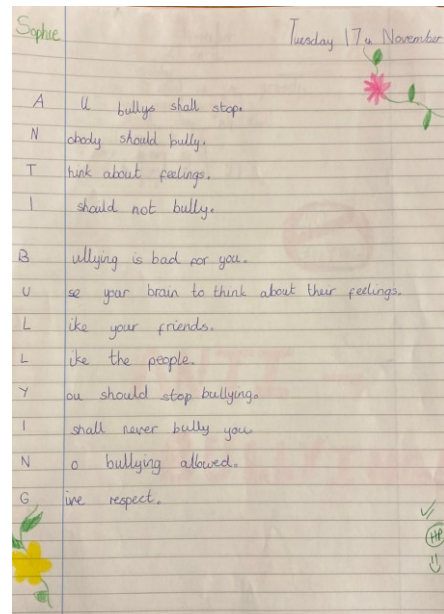 Sophie
Tuesday 17th November
A U bullys shall stop.
N obody should bully.
T hink about feelings.
I should not bully.
B ullying is bad for you.
U se your brain to think about their feelings.
L ike your friends.
L ike the people.
Y ou should stop bullying.
I shall never bully you.
N o bullying allowed.
G ive respect.
HP